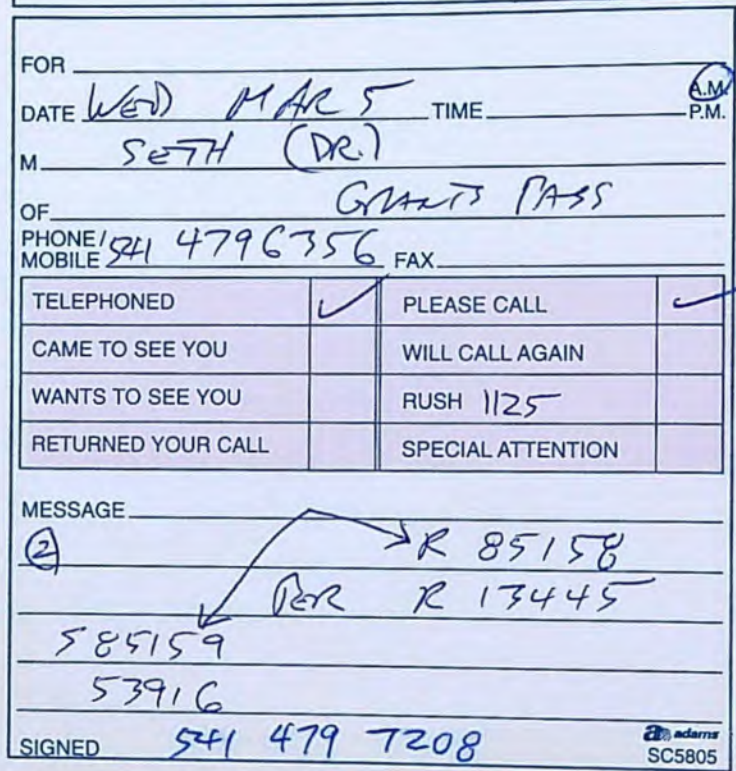 FOR
A.M.
DATE WED MAR 5 TIME P.M.
M SETH (DR.)
OF GRANTS PASS
PHONE/
MOBILE 541 4796356 FAX
TELEPHONED ✓ PLEASE CALL ✓
CAME TO SEE YOU WILL CALL AGAIN
WANTS TO SEE YOU RUSH 1125
RETURNED YOUR CALL SPECIAL ATTENTION
MESSAGE
② R 85158
PER R 13445
585159
53916
SIGNED 541 479 7208
adams
SC5805